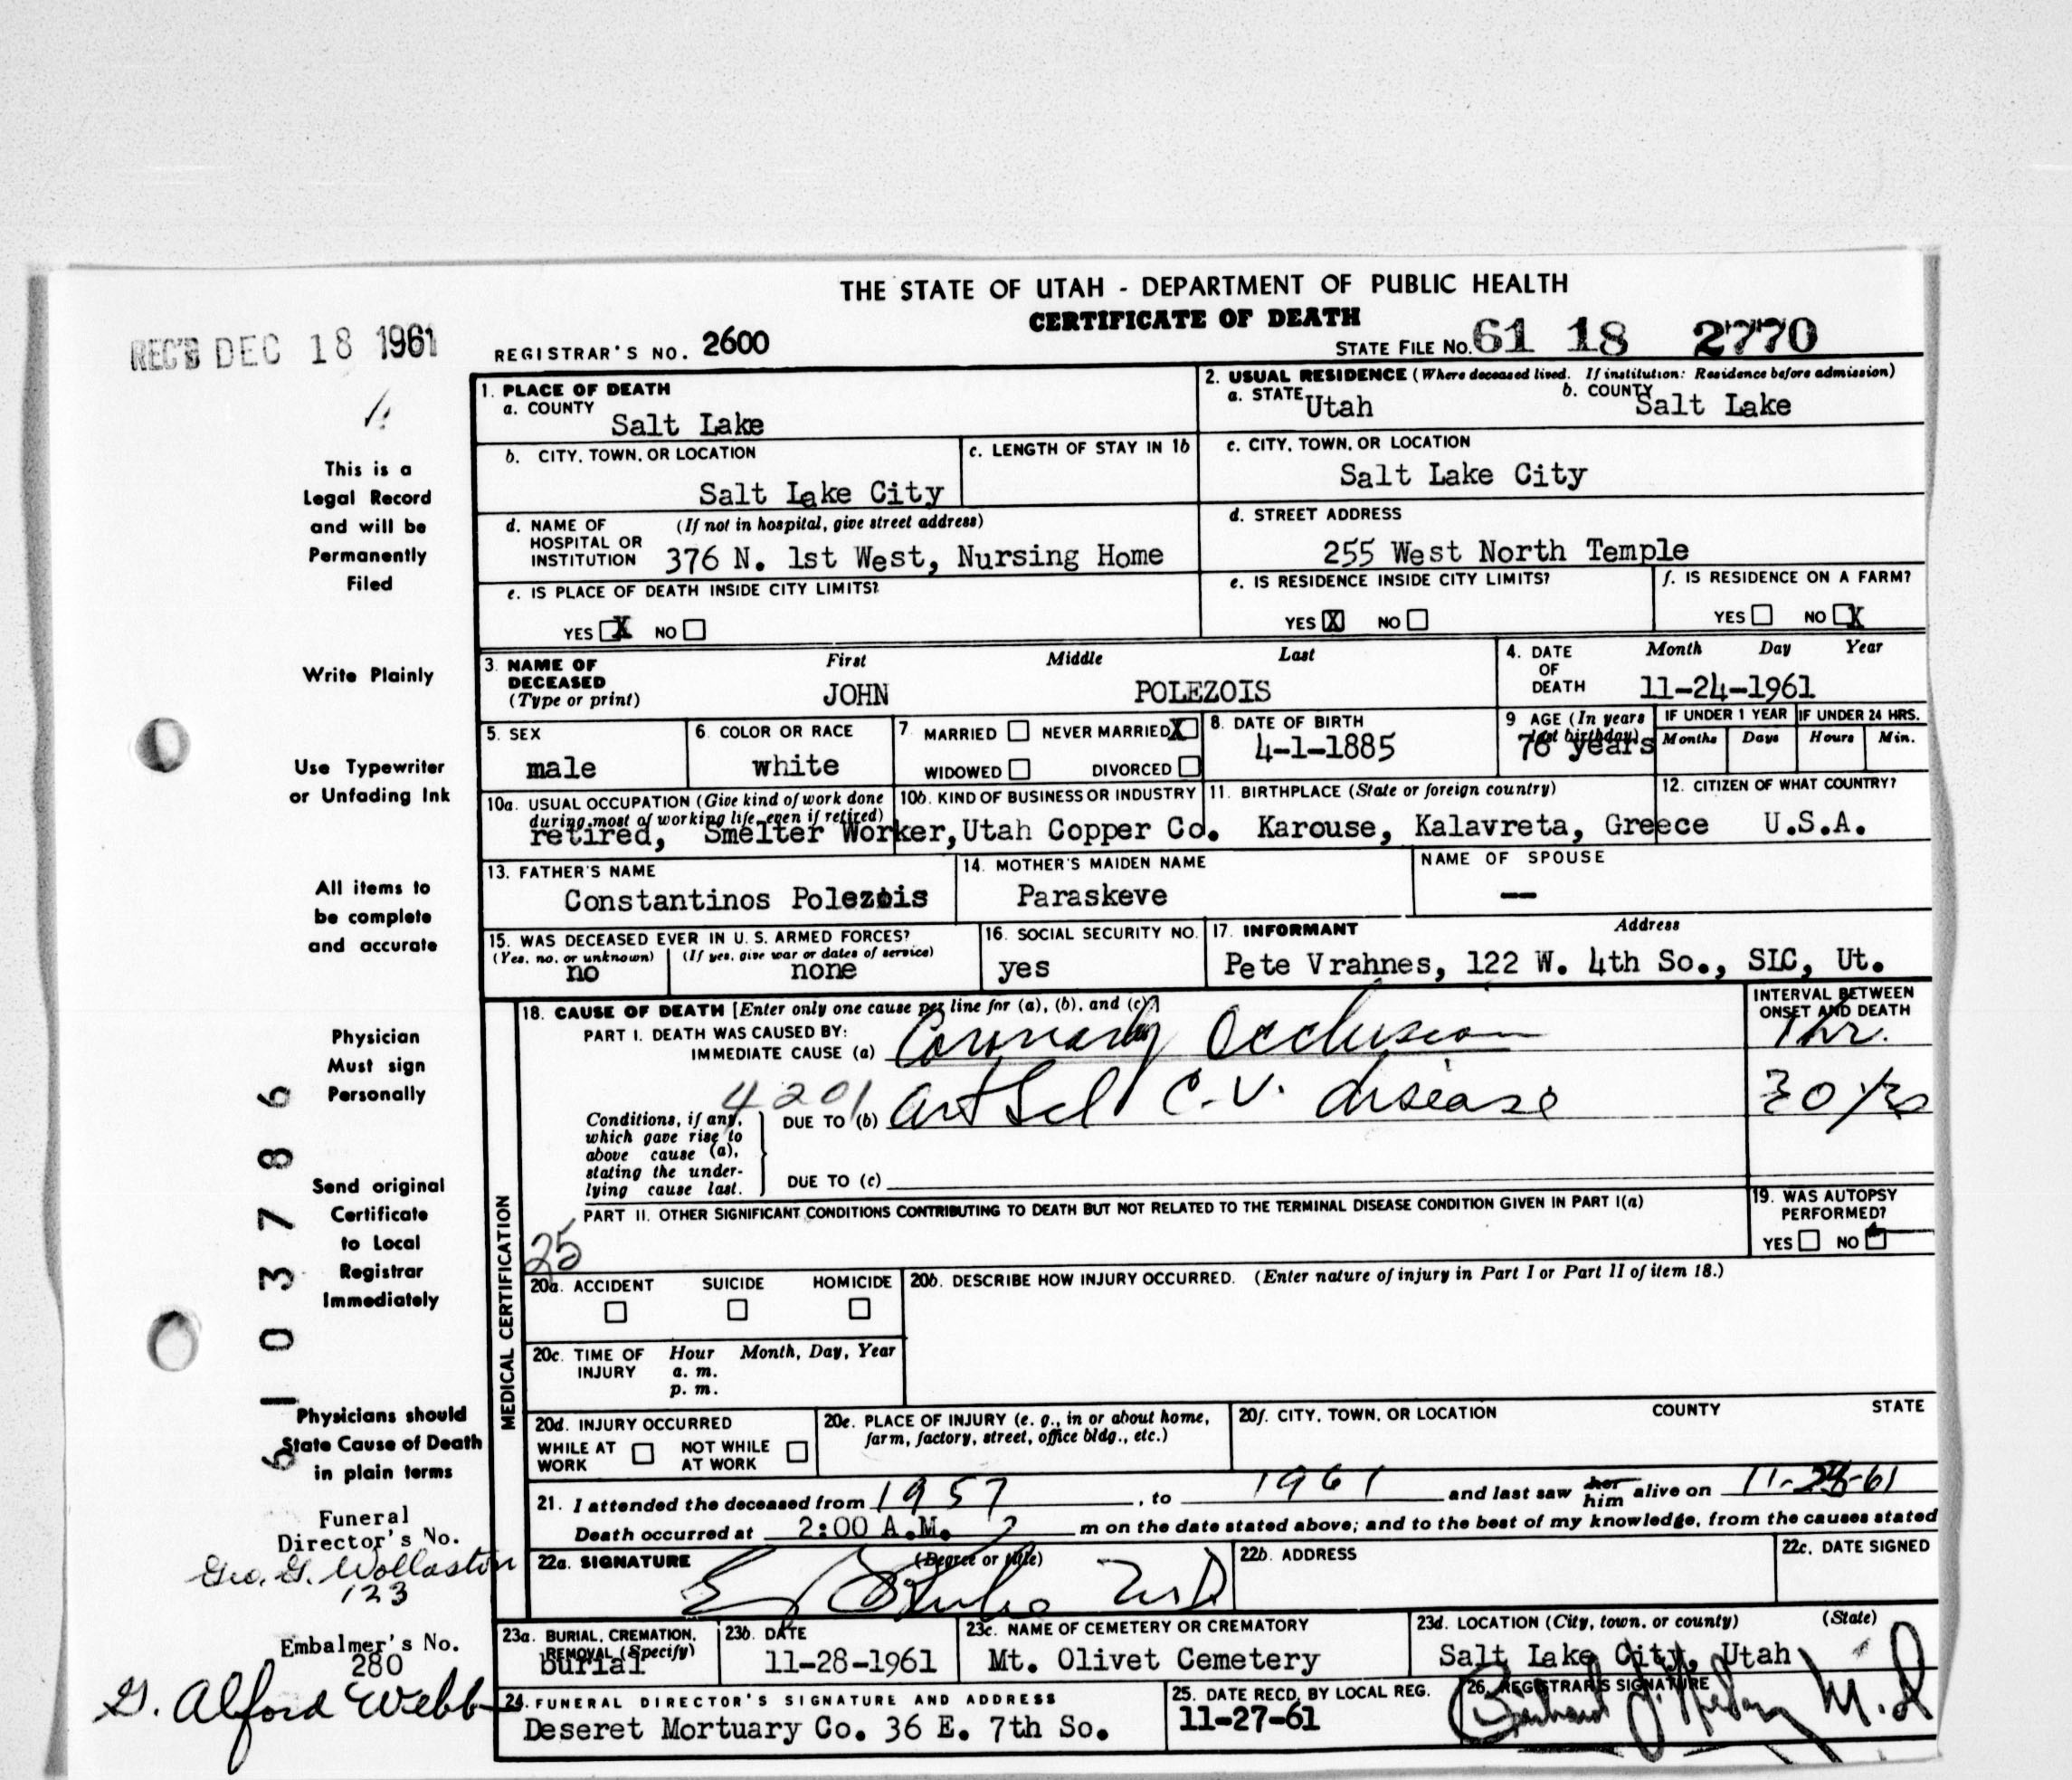 THE STATE OF UTAH - DEPARTMENT OF PUBLIC HEALTH
CERTIFICATE OF DEATH
REC'D DEC 18 1961
REGISTRAR'S NO. 2600
STATE FILE NO. 61 18 2770
This is a
Legal Record
and will be
Permanently
Filed
Write Plainly
Use Typewriter
or Unfading Ink
All items to
be complete
and accurate
Physician
Must sign
Personally
Send original
Certificate
to Local
Registrar
Immediately
Physicians should
State Cause of Death
in plain terms
Funeral
Director's No.
Geo. G. Wollaston
123
Embalmer's No.
280
G. Alford Webb
61 103786
1. PLACE OF DEATH
a. COUNTY
Salt Lake
2. USUAL RESIDENCE (Where deceased lived. If institution: Residence before admission)
a. STATE Utah b. COUNTY Salt Lake
b. CITY, TOWN, OR LOCATION
Salt Lake City
c. LENGTH OF STAY IN 1b
c. CITY, TOWN, OR LOCATION
Salt Lake City
d. NAME OF (If not in hospital, give street address)
HOSPITAL OR
INSTITUTION 376 N. 1st West, Nursing Home
d. STREET ADDRESS
255 West North Temple
e. IS PLACE OF DEATH INSIDE CITY LIMITS?
YES X NO
e. IS RESIDENCE INSIDE CITY LIMITS?
YES X NO
f. IS RESIDENCE ON A FARM?
YES NO X
3. NAME OF
DECEASED
(Type or print)
First Middle Last
JOHN POLEZOIS
4. DATE
OF
DEATH
Month Day Year
11-24-1961
5. SEX
male
6. COLOR OR RACE
white
7. MARRIED NEVER MARRIED X
WIDOWED DIVORCED
8. DATE OF BIRTH
4-1-1885
9 AGE (In years
last birthday)
76 years
IF UNDER 1 YEAR IF UNDER 24 HRS.
Months Days Hours Min.
10a. USUAL OCCUPATION (Give kind of work done
during most of working life, even if retired)
10b. KIND OF BUSINESS OR INDUSTRY
retired, Smelter Worker, Utah Copper Co.
11. BIRTHPLACE (State or foreign country)
Karouse, Kalavreta, Greece
12. CITIZEN OF WHAT COUNTRY?
U.S.A.
13. FATHER'S NAME
Constantinos Polezois
14. MOTHER'S MAIDEN NAME
Paraskeve
NAME OF SPOUSE
—
15. WAS DECEASED EVER IN U. S. ARMED FORCES?
(Yes, no, or unknown) (If yes, give war or dates of service)
no none
16. SOCIAL SECURITY NO.
yes
17. INFORMANT Address
Pete Vrahnes, 122 W. 4th So., SLC, Ut.
MEDICAL CERTIFICATION
18. CAUSE OF DEATH [Enter only one cause per line for (a), (b), and (c)]
PART I. DEATH WAS CAUSED BY:
IMMEDIATE CAUSE (a) Coronary Occlusion
INTERVAL BETWEEN
ONSET AND DEATH
1 hr.
4201
Conditions, if any,
which gave rise to
above cause (a),
stating the under-
lying cause last.
DUE TO (b) Art Scl C.V. disease
30 yrs
DUE TO (c)
PART II. OTHER SIGNIFICANT CONDITIONS CONTRIBUTING TO DEATH BUT NOT RELATED TO THE TERMINAL DISEASE CONDITION GIVEN IN PART I(a)
25
19. WAS AUTOPSY
PERFORMED?
YES NO
20a. ACCIDENT SUICIDE HOMICIDE
20b. DESCRIBE HOW INJURY OCCURRED. (Enter nature of injury in Part I or Part II of item 18.)
20c. TIME OF Hour Month, Day, Year
INJURY a. m.
p. m.
20d. INJURY OCCURRED
WHILE AT WORK NOT WHILE AT WORK
20e. PLACE OF INJURY (e. g., in or about home,
farm, factory, street, office bldg., etc.)
20f. CITY, TOWN, OR LOCATION COUNTY STATE
21. I attended the deceased from 1957, to 1961 and last saw her him alive on 11-23-61
Death occurred at 2:00 A.M. m on the date stated above; and to the best of my knowledge, from the causes stated
22a. SIGNATURE (Degree or title)
22b. ADDRESS
22c. DATE SIGNED
23a. BURIAL, CREMATION,
REMOVAL (Specify)
burial
23b. DATE
11-28-1961
23c. NAME OF CEMETERY OR CREMATORY
Mt. Olivet Cemetery
23d. LOCATION (City, town, or county) (State)
Salt Lake City, Utah
24. FUNERAL DIRECTOR'S SIGNATURE AND ADDRESS
Deseret Mortuary Co. 36 E. 7th So.
25. DATE RECD. BY LOCAL REG.
11-27-61
26. REGISTRAR'S SIGNATURE
M.D